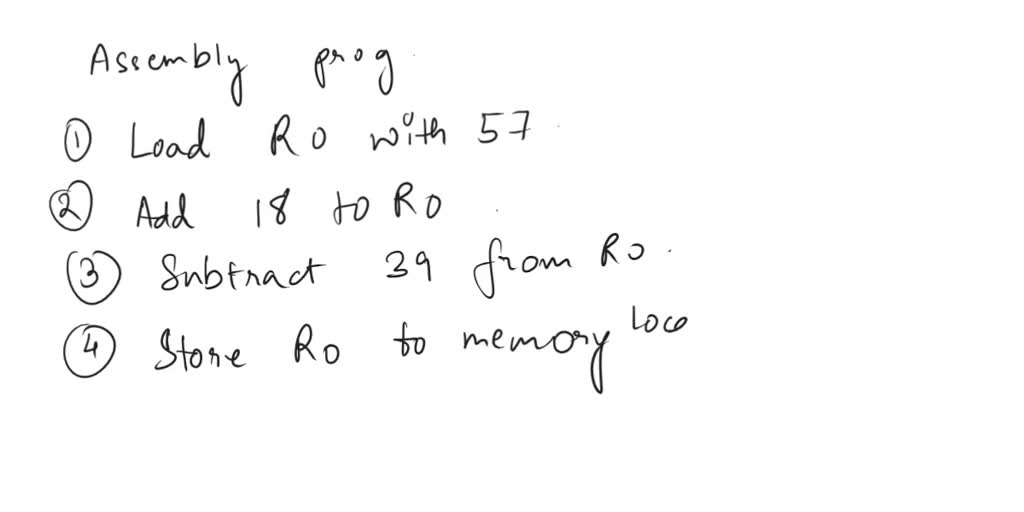 Assembly prog
① Load R0 with 57
② Add 18 to R0
③ Subtract 39 from R0.
④ Store R0 to memory loco